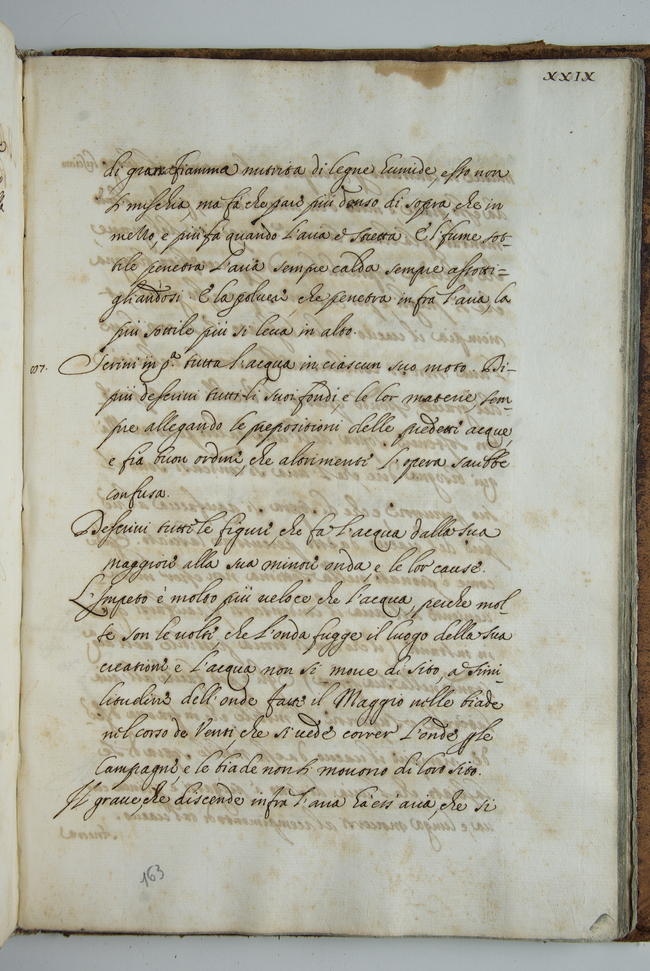 XXIX
di gran fiamma nutrita di legne humide, esso non
si mischia, ma fà che pare più denso di sopra che in
mezzo, e più fà quando l'aria è stretta. E 'l fume sot-
tile penetra l'aria sempre calda sempre assotti-
gliandosi. E la poluere, che penetra infra l'aria, la
più sottile più si leua in alto.
Scriui in pª. tutta l'acqua in ciascun suo moto. Di-
più descriui tutti li suoi fondi, e le lor materie, sem-
pre allegando le preposizioni delle predette acque,
e fia buon ordine, che altrimenti l'opera sarebbe
confusa.
Descriui tutte le figure, che fà l'acqua dalla sua
maggiore alla sua minore onda, e le lor cause.
L'Impeto è molto più ueloce che l'acqua, perche mol-
te son le uolte, che l'onda fugge il luogo della sua
creatione, e l'acqua non si moue di sito, a simi-
litudine dell'onde fatte il Maggio nelle biade
nel corso de Venti che si uede correr l'onde p le
Campagne, e le biade non si mouono di loro sito.
Il graue, che discende infra l'aria hà ess'aria, che si
163